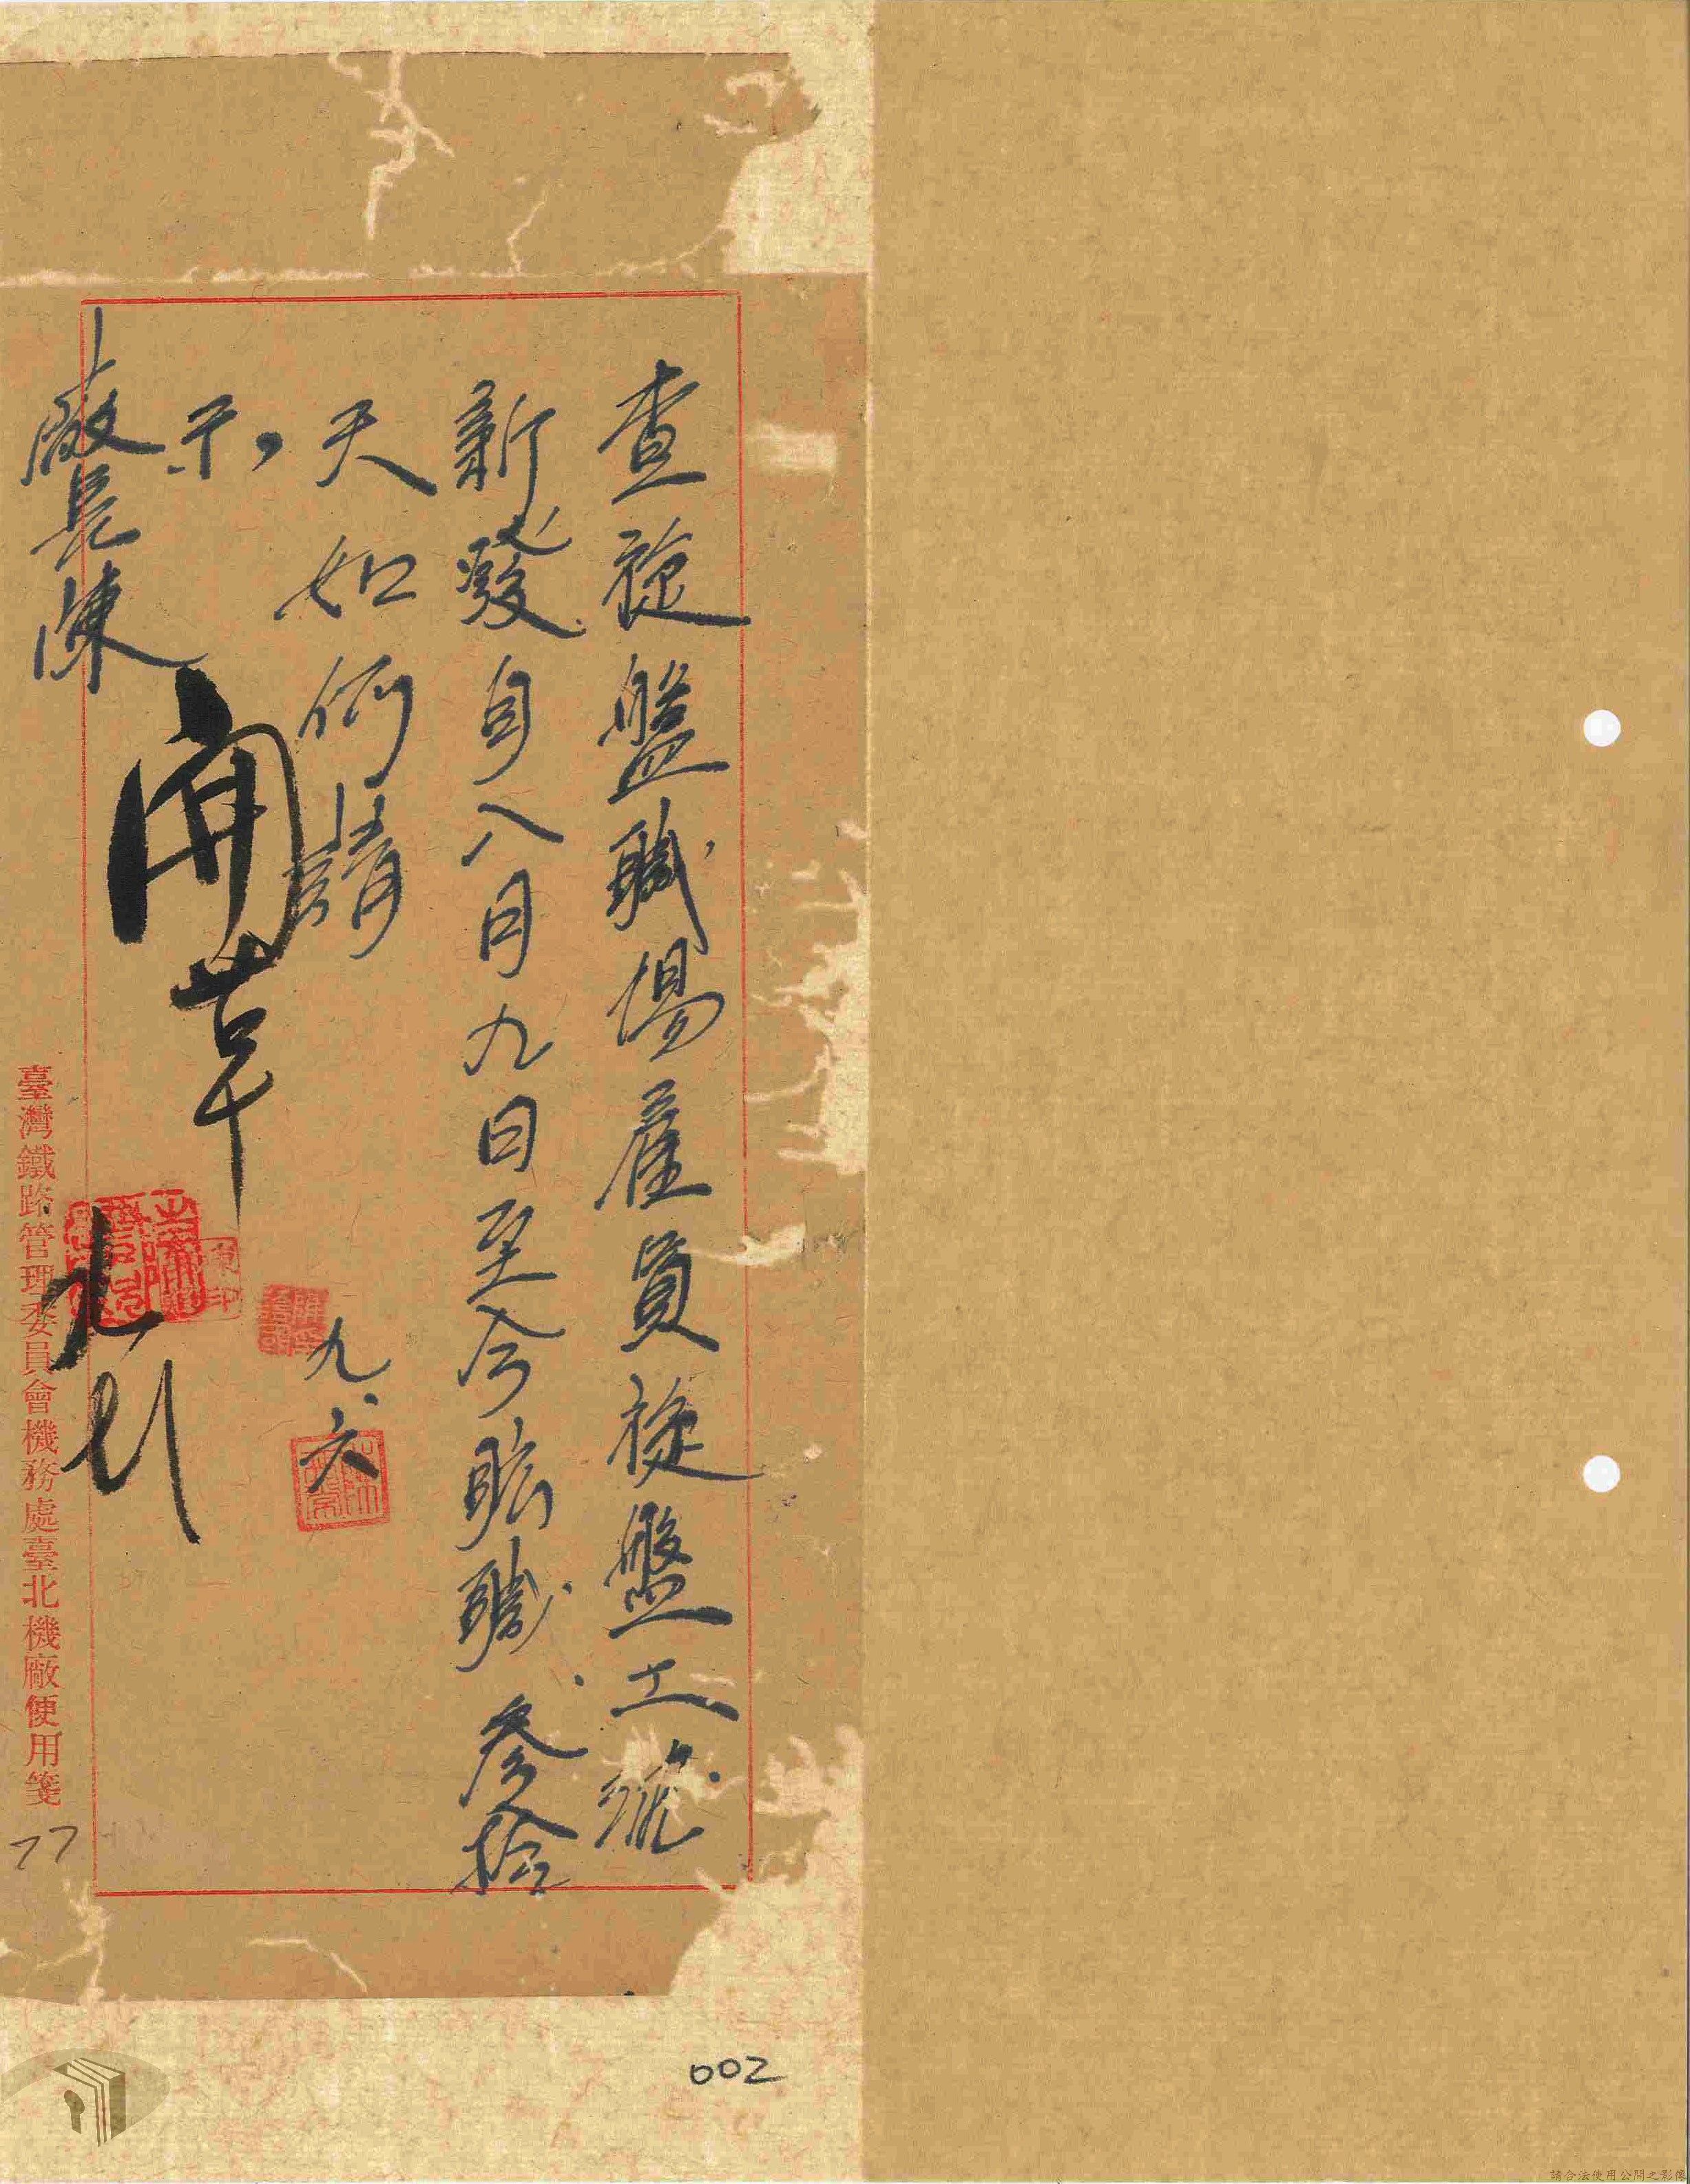 查旋盤職場雇員旋盤工
新發自八月九日至今曠職參拾
天如何請
示,
九、六
廠長陳
開革
九 七
臺灣鐵路管理委員會機務處臺北機廠便用箋
77
002
請合法使用公開之影像